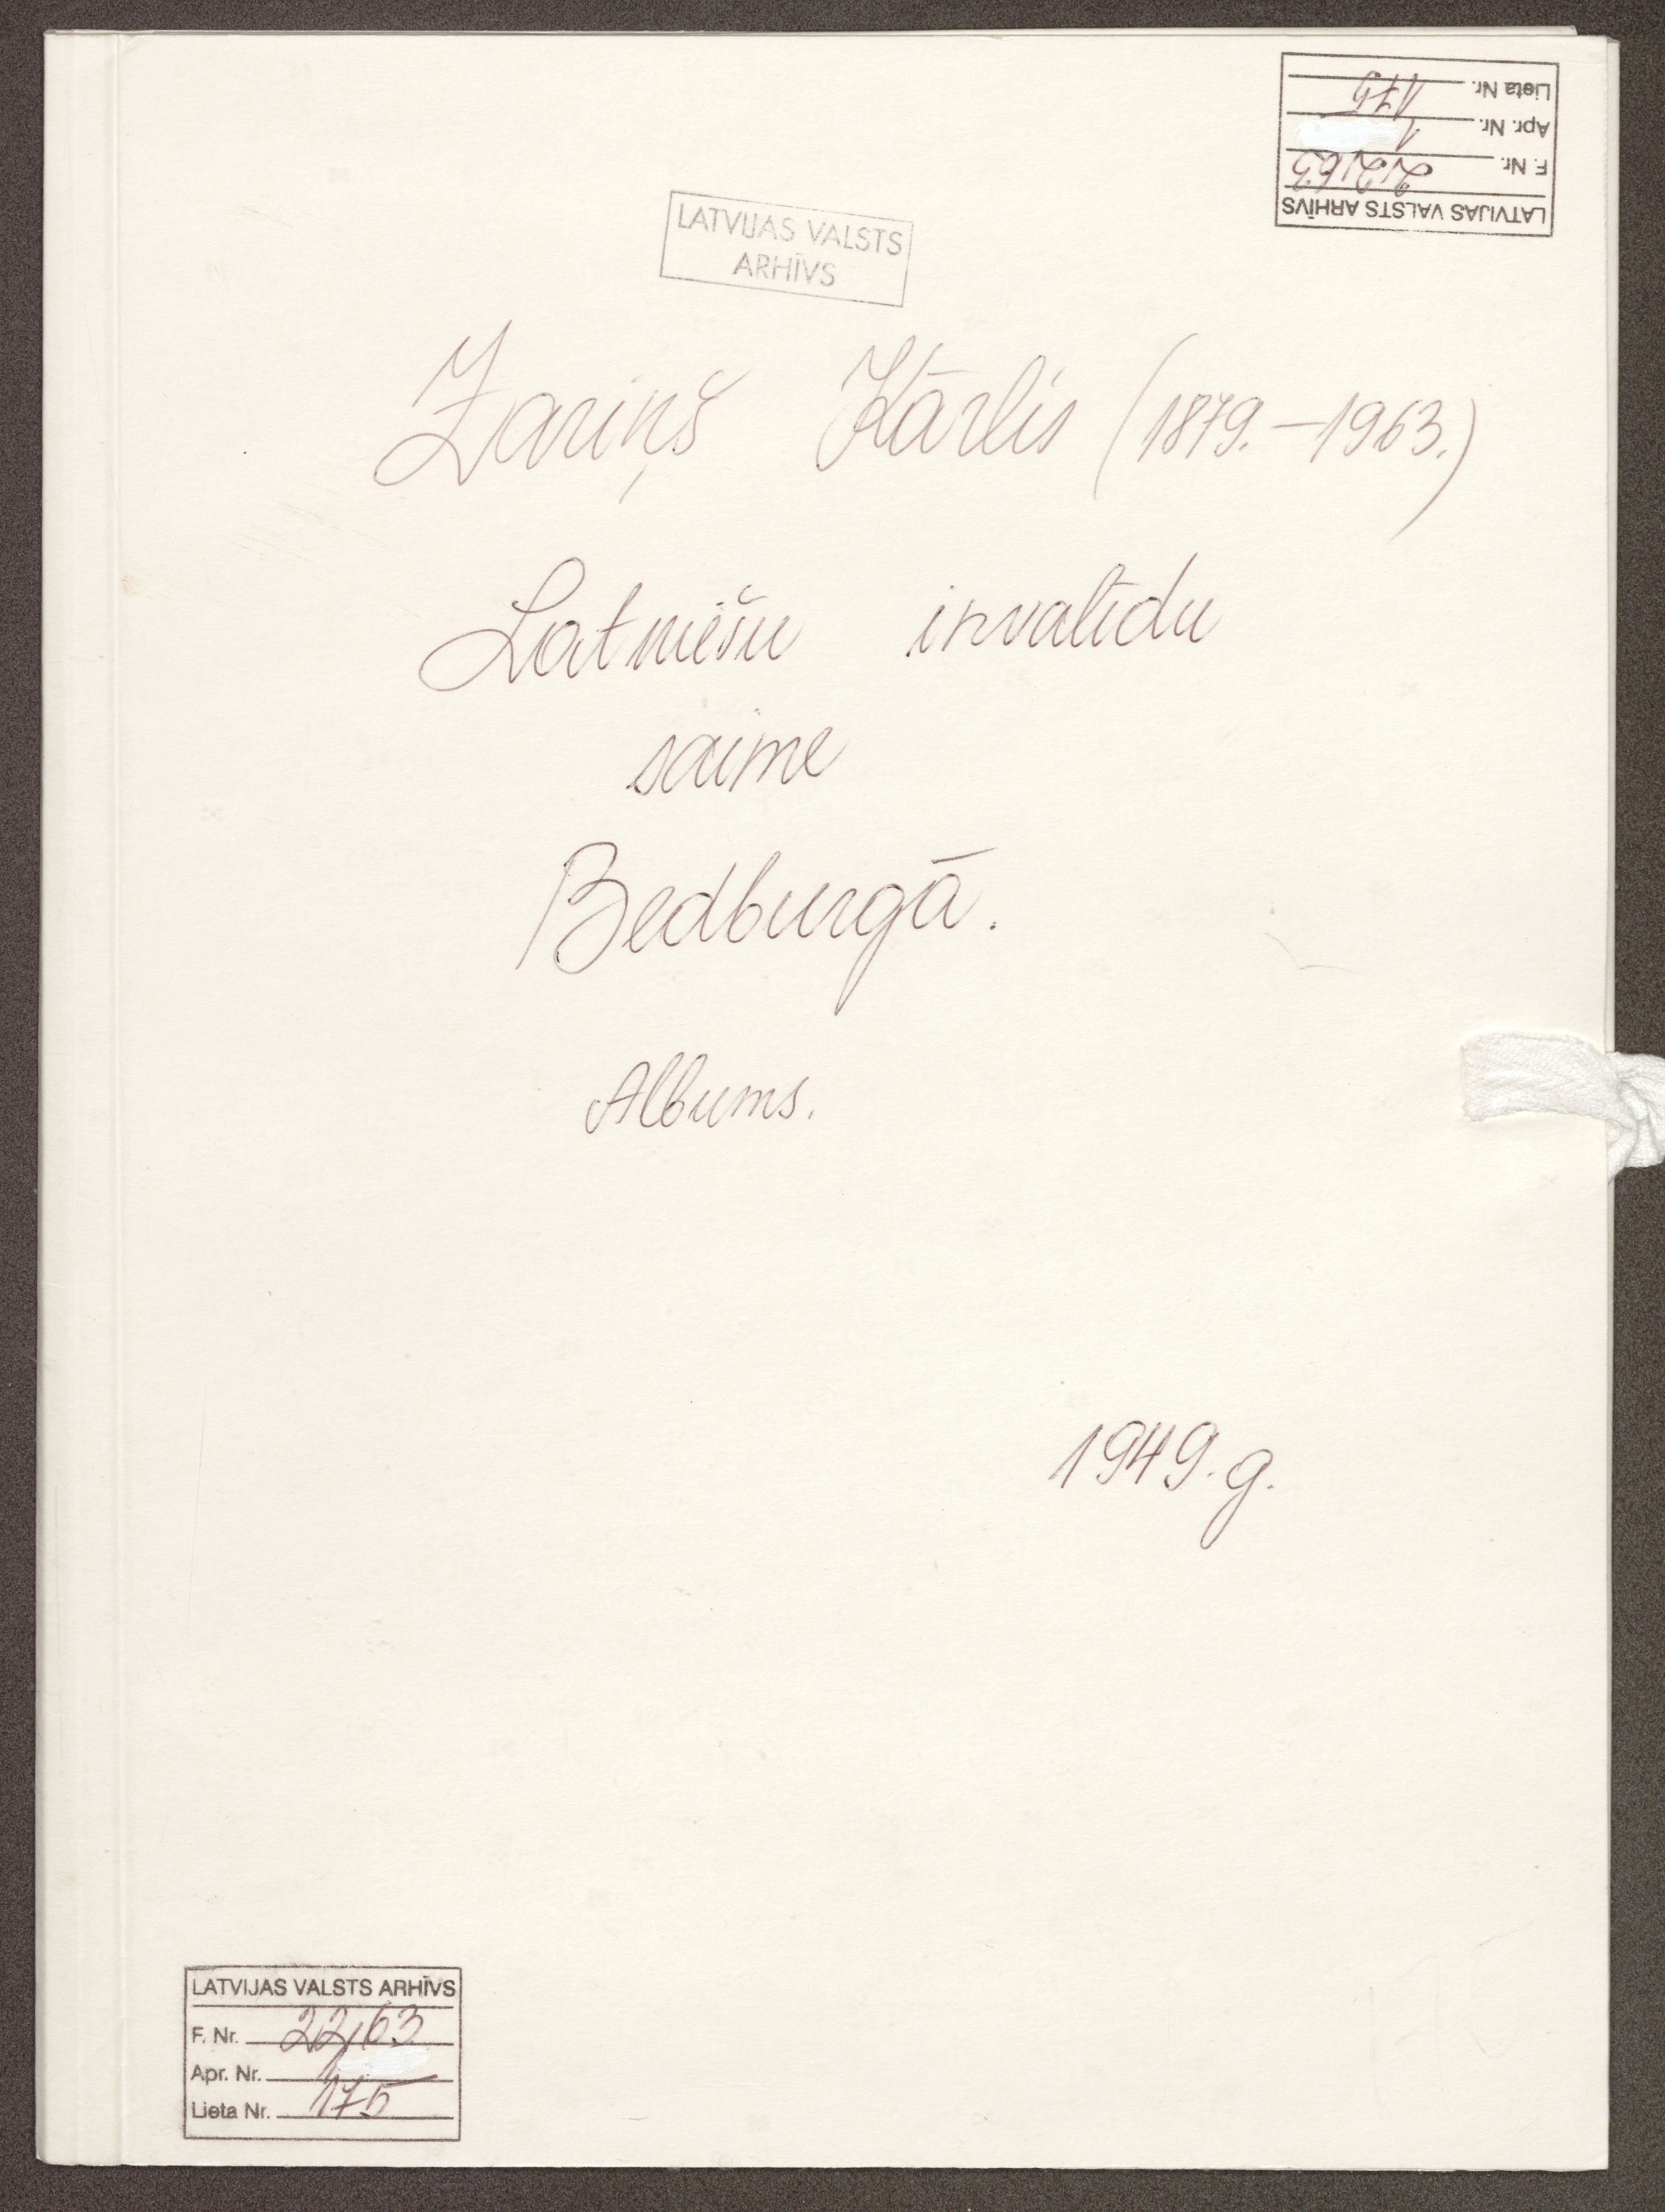 Lieta Nr. 175
Apr. Nr. 1
F. Nr. 2263
LATVIJAS VALSTS ARHĪVS
LATVIJAS VALSTS
ARHĪVS
Zariņš Kārlis (1879.-1963.)
Latviešu invalīdu
saime
Bedburgā.
Albums.
1949. g.
LATVIJAS VALSTS ARHĪVS
F. Nr. 2263
Apr. Nr. 1
Lieta Nr. 175